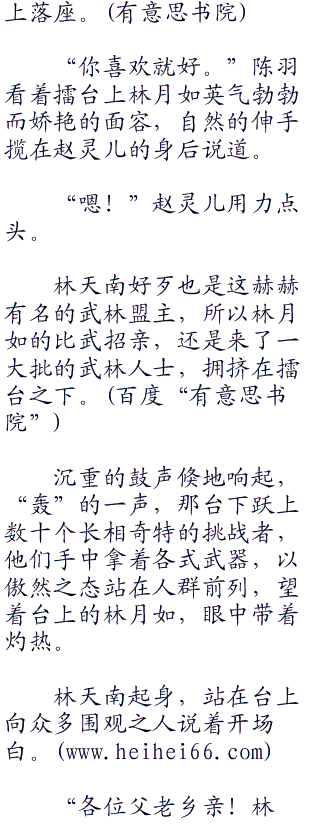 上落座。(有意思书院)
“你喜欢就好。”陈羽
看着擂台上林月如英气勃勃
而娇艳的面容，自然的伸手
揽在赵灵儿的身后说道。
“嗯！”赵灵儿用力点
头。
林天南好歹也是这赫赫
有名的武林盟主，所以林月
如的比武招亲，还是来了一
大批的武林人士，拥挤在擂
台之下。(百度“有意思书
院”)
沉重的鼓声倏地响起，
“轰”的一声，那台下跃上
数十个长相奇特的挑战者，
他们手中拿着各式武器，以
傲然之态站在人群前列，望
着台上的林月如，眼中带着
灼热。
林天南起身，站在台上
向众多围观之人说着开场
白。(www.heihei66.com)
“各位父老乡亲！林